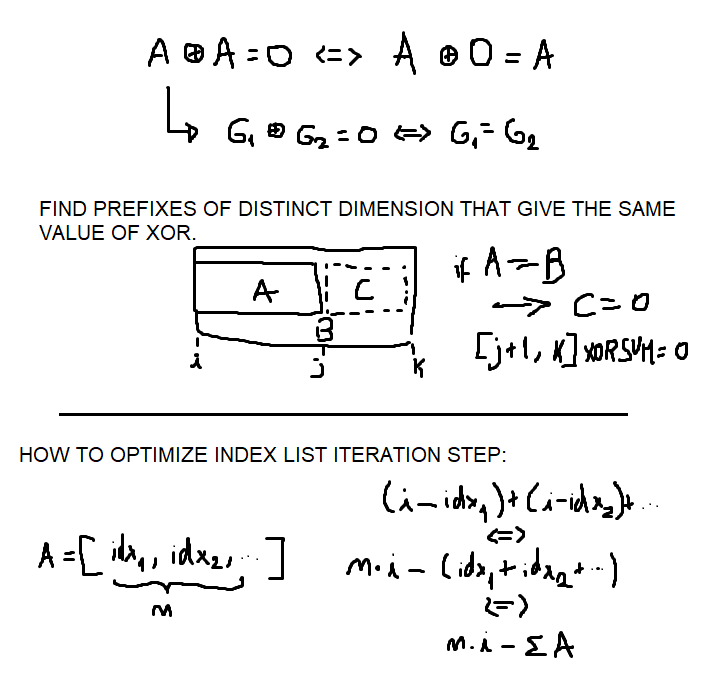 A ⊕ A = 0 <=> A ⊕ 0 = A
G₁ ⊕ G₂ = 0 <=> G₁ = G₂
FIND PREFIXES OF DISTINCT DIMENSION THAT GIVE THE SAME
VALUE OF XOR.
if A = B
A C
→ C = 0
B
[j+1, K] XORSUM = 0
i j K
HOW TO OPTIMIZE INDEX LIST ITERATION STEP:
(i - idx₁) + (i - idx₂) + ...
<=>
A = [ idx₁, idx₂, ... ]
m · i - (idx₁ + idx₂ + ...)
m
<=>
m · i - Σ A